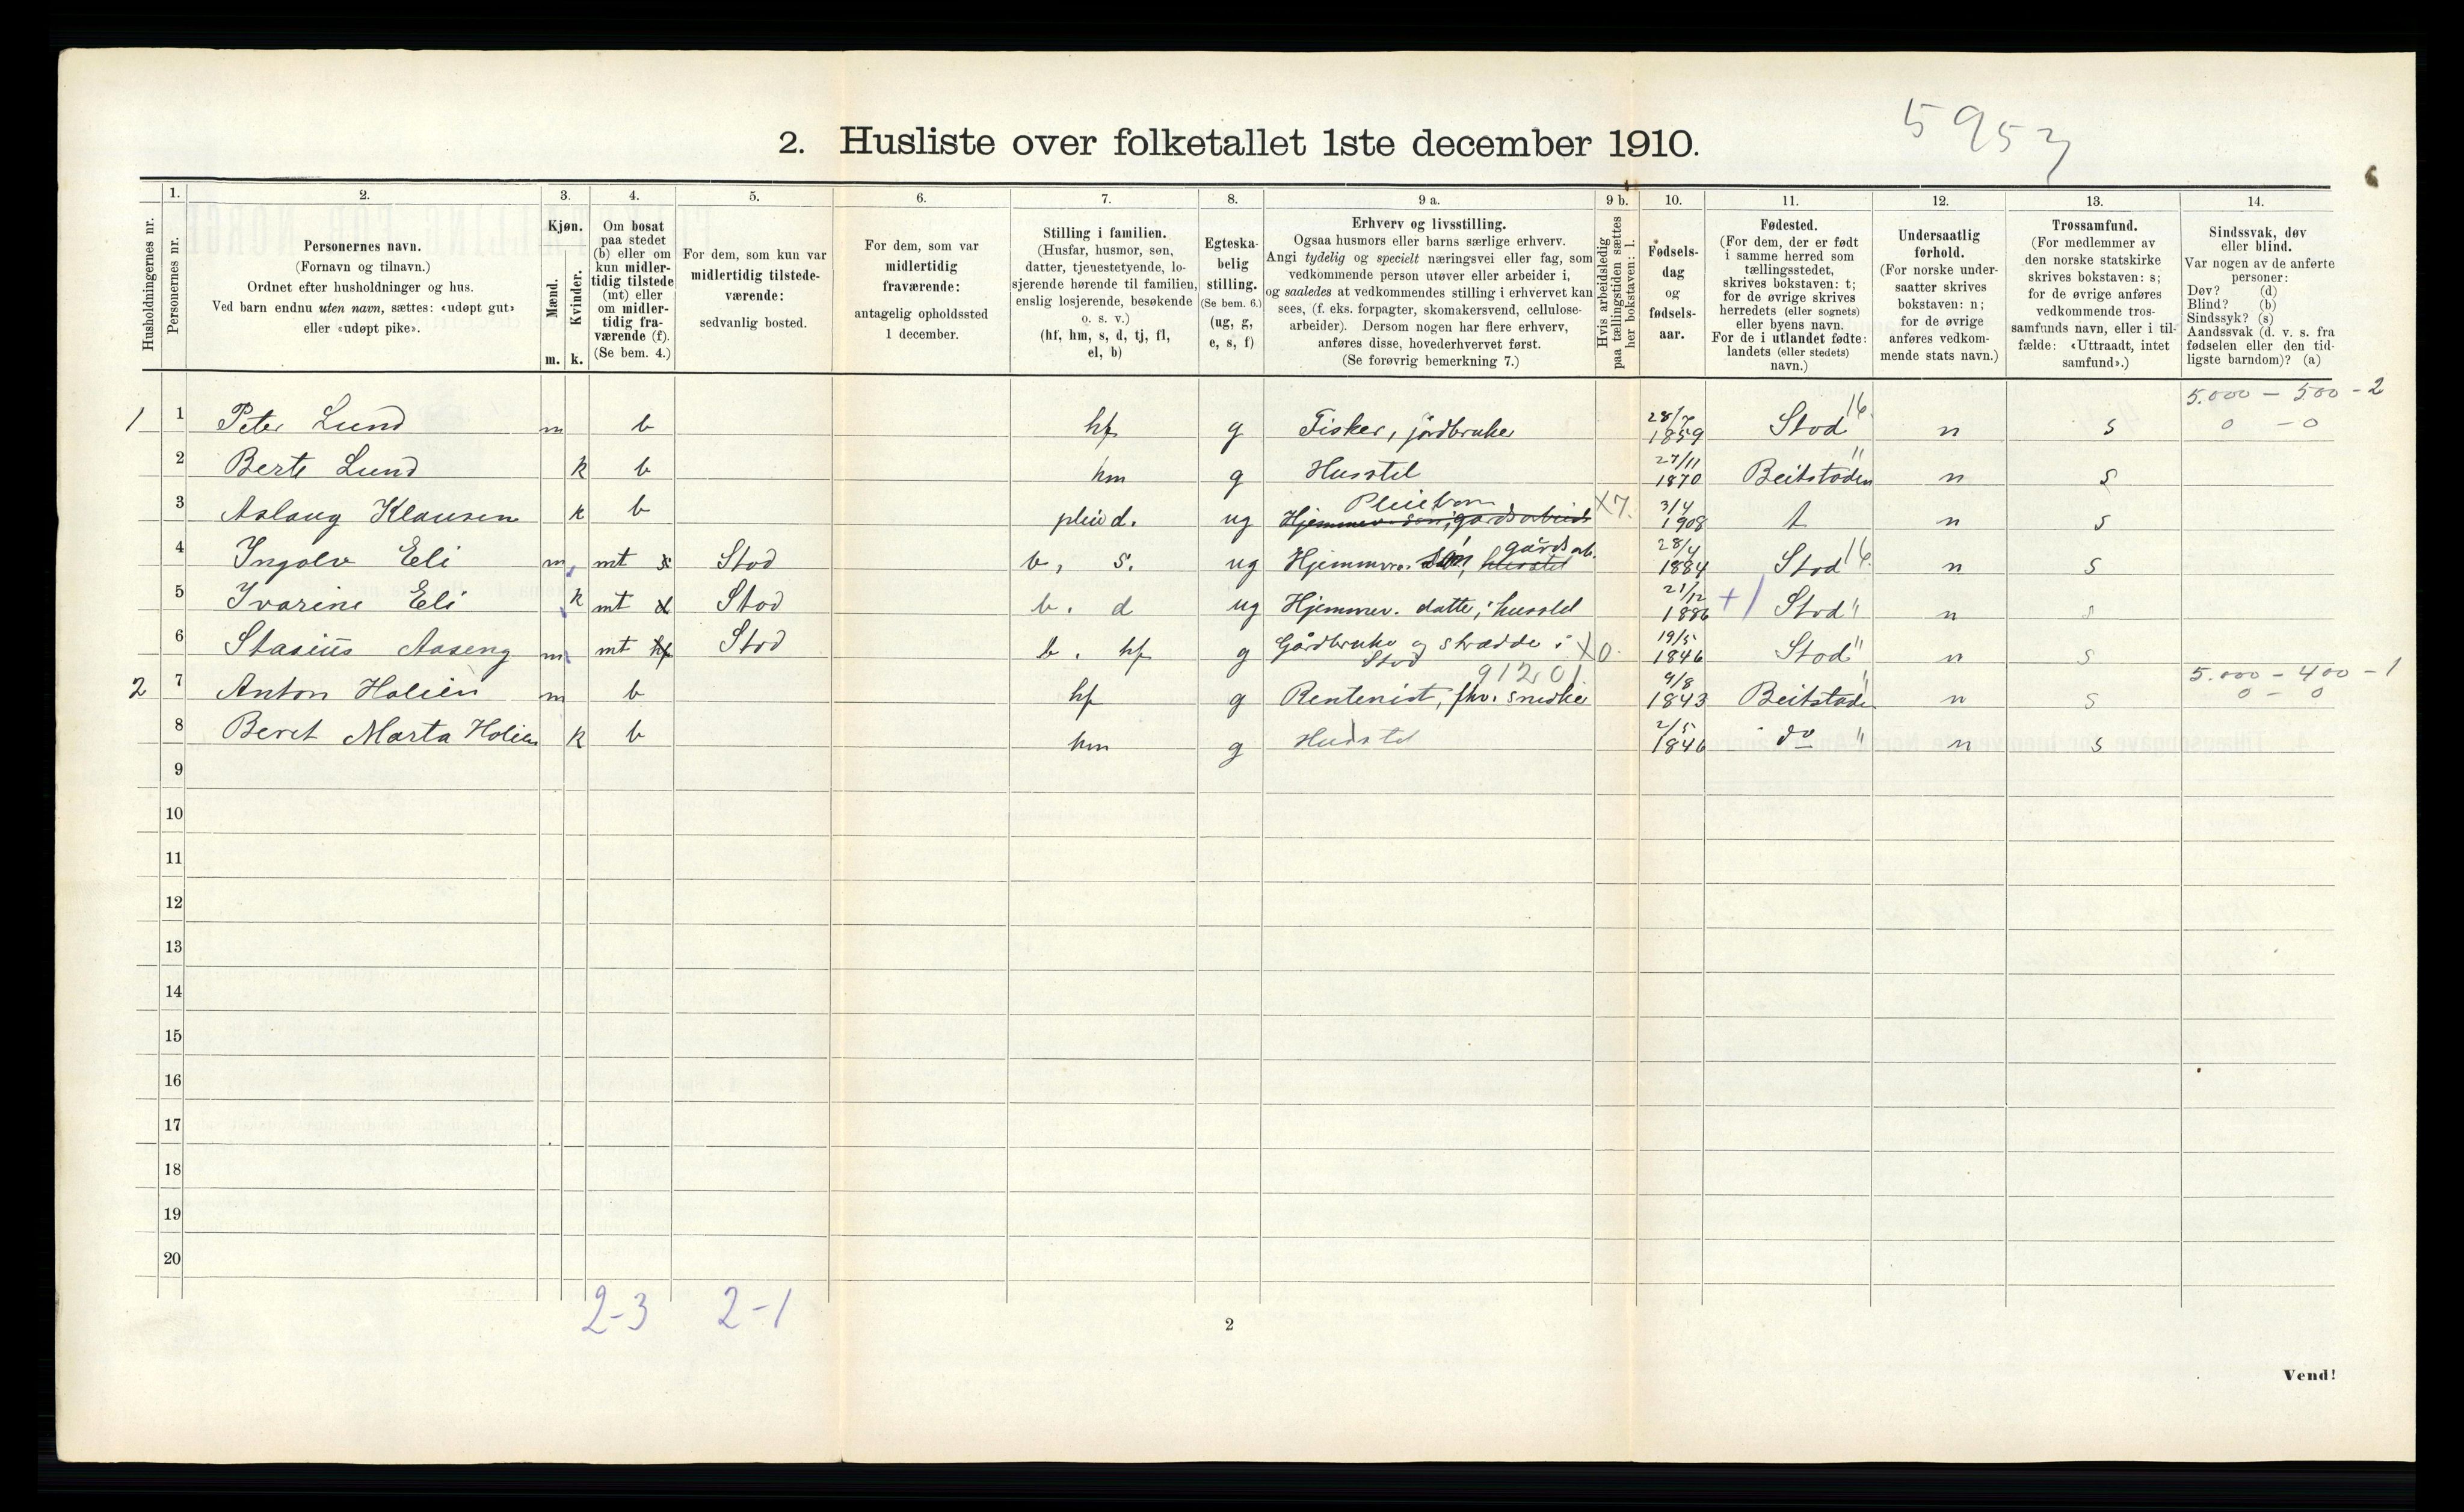 5953
2. Husliste over folketallet 1ste december 1910.
Husholdningernes nr.
1. Personernes nr.
2. Personernes navn.
(Fornavn og tilnavn.)
Ordnet efter husholdninger og hus.
Ved barn endnu uten navn, sættes: «udøpt gut»
eller «udøpt pike».
3. Kjøn.
Mænd. m.
Kvinder. k.
4. Om bosat
paa stedet
(b) eller om
kun midler-
tidig tilstede
(mt) eller
om midler-
tidig fra-
værende (f).
(Se bem. 4.)
5. For dem, som kun var
midlertidig tilstede-
værende:
sedvanlig bosted.
6. For dem, som var
midlertidig
fraværende:
antagelig opholdssted
1 december.
7. Stilling i familien.
(Husfar, husmor, søn,
datter, tjenestetyende, lo-
sjerende hørende til familien,
enslig losjerende, besøkende
o. s. v.)
(hf, hm, s, d, tj, fl,
el, b)
8. Egteska-
belig
stilling.
(Se bem. 6.)
(ug, g,
e, s, f)
9 a. Erhverv og livsstilling.
Ogsaa husmors eller barns særlige erhverv.
Angi tydelig og specielt næringsvei eller fag, som
vedkommende person utøver eller arbeider i,
og saaledes at vedkommendes stilling i erhvervet kan
sees, (f. eks. forpagter, skomakersvend, cellulose-
arbeider). Dersom nogen har flere erhverv,
anføres disse, hovederhvervet først.
(Se forøvrig bemerkning 7.)
9 b. Hvis arbeidsledig
paa tællingstiden sættes
her bokstaven: l.
10. Fødsels-
dag
og
fødsels-
aar.
11. Fødested.
(For dem, der er født
i samme herred som
tællingsstedet,
skrives bokstaven: t;
for de øvrige skrives
herredets (eller sognets)
eller byens navn.
For de i utlandet fødte:
landets (eller stedets)
navn.)
12. Undersaatlig
forhold.
(For norske under-
saatter skrives
bokstaven: n;
for de øvrige
anføres vedkom-
mende stats navn.)
13. Trossamfund.
(For medlemmer av
den norske statskirke
skrives bokstaven: s;
for de øvrige anføres
vedkommende tros-
samfunds navn, eller i til-
fælde: «Uttraadt, intet
samfund».)
14. Sindssvak, døv
eller blind.
Var nogen av de anførte
personer:
Døv? (d)
Blind? (b)
Sindssyk? (s)
Aandssvak (d. v. s. fra
fødselen eller den tid-
ligste barndom)? (a)
5.000 - 500 - 2
1 1 Peter Lund m b hf g Fisker, jordbruker 28/7 1859 Stod 16. n s 0 - 0
2 Berte Lund k b hm g Husstel 27/11 1870 Beitstaden " n s
3 Aslaug Klausen k b pleie d. ug Hjemmev. søn, gårdsarbeid Pleiebarn X7. 3/4 1908 t n s
4 Ingolv Eli m mt s Stod b, s. ug Hjemmev. søn, husstel gårdsarb. 28/4 1884 Stod 16. n s
5 Ivarine Eli k mt d Stod b. d ug Hjemmev. datter, husstel 21/12 1886 +1 Stod " n s
6 Stasius Aaseng m mt hf Stod b. hf g Gårdbruker og skrædder i Stod X0. 19/5 1846 Stod " n s
91201 5.000 - 400 - 1
2 7 Anton Holien m b hf g Rentenist, fhv. snedker 9/8 1843 Beitstaden " n s 0 - 0
8 Beret Marta Holien k b hm g Husstel 2/5 1846 do " n s
9
10
11
12
13
14
15
16
17
18
19
20
2-3 2-1
2
Vend!